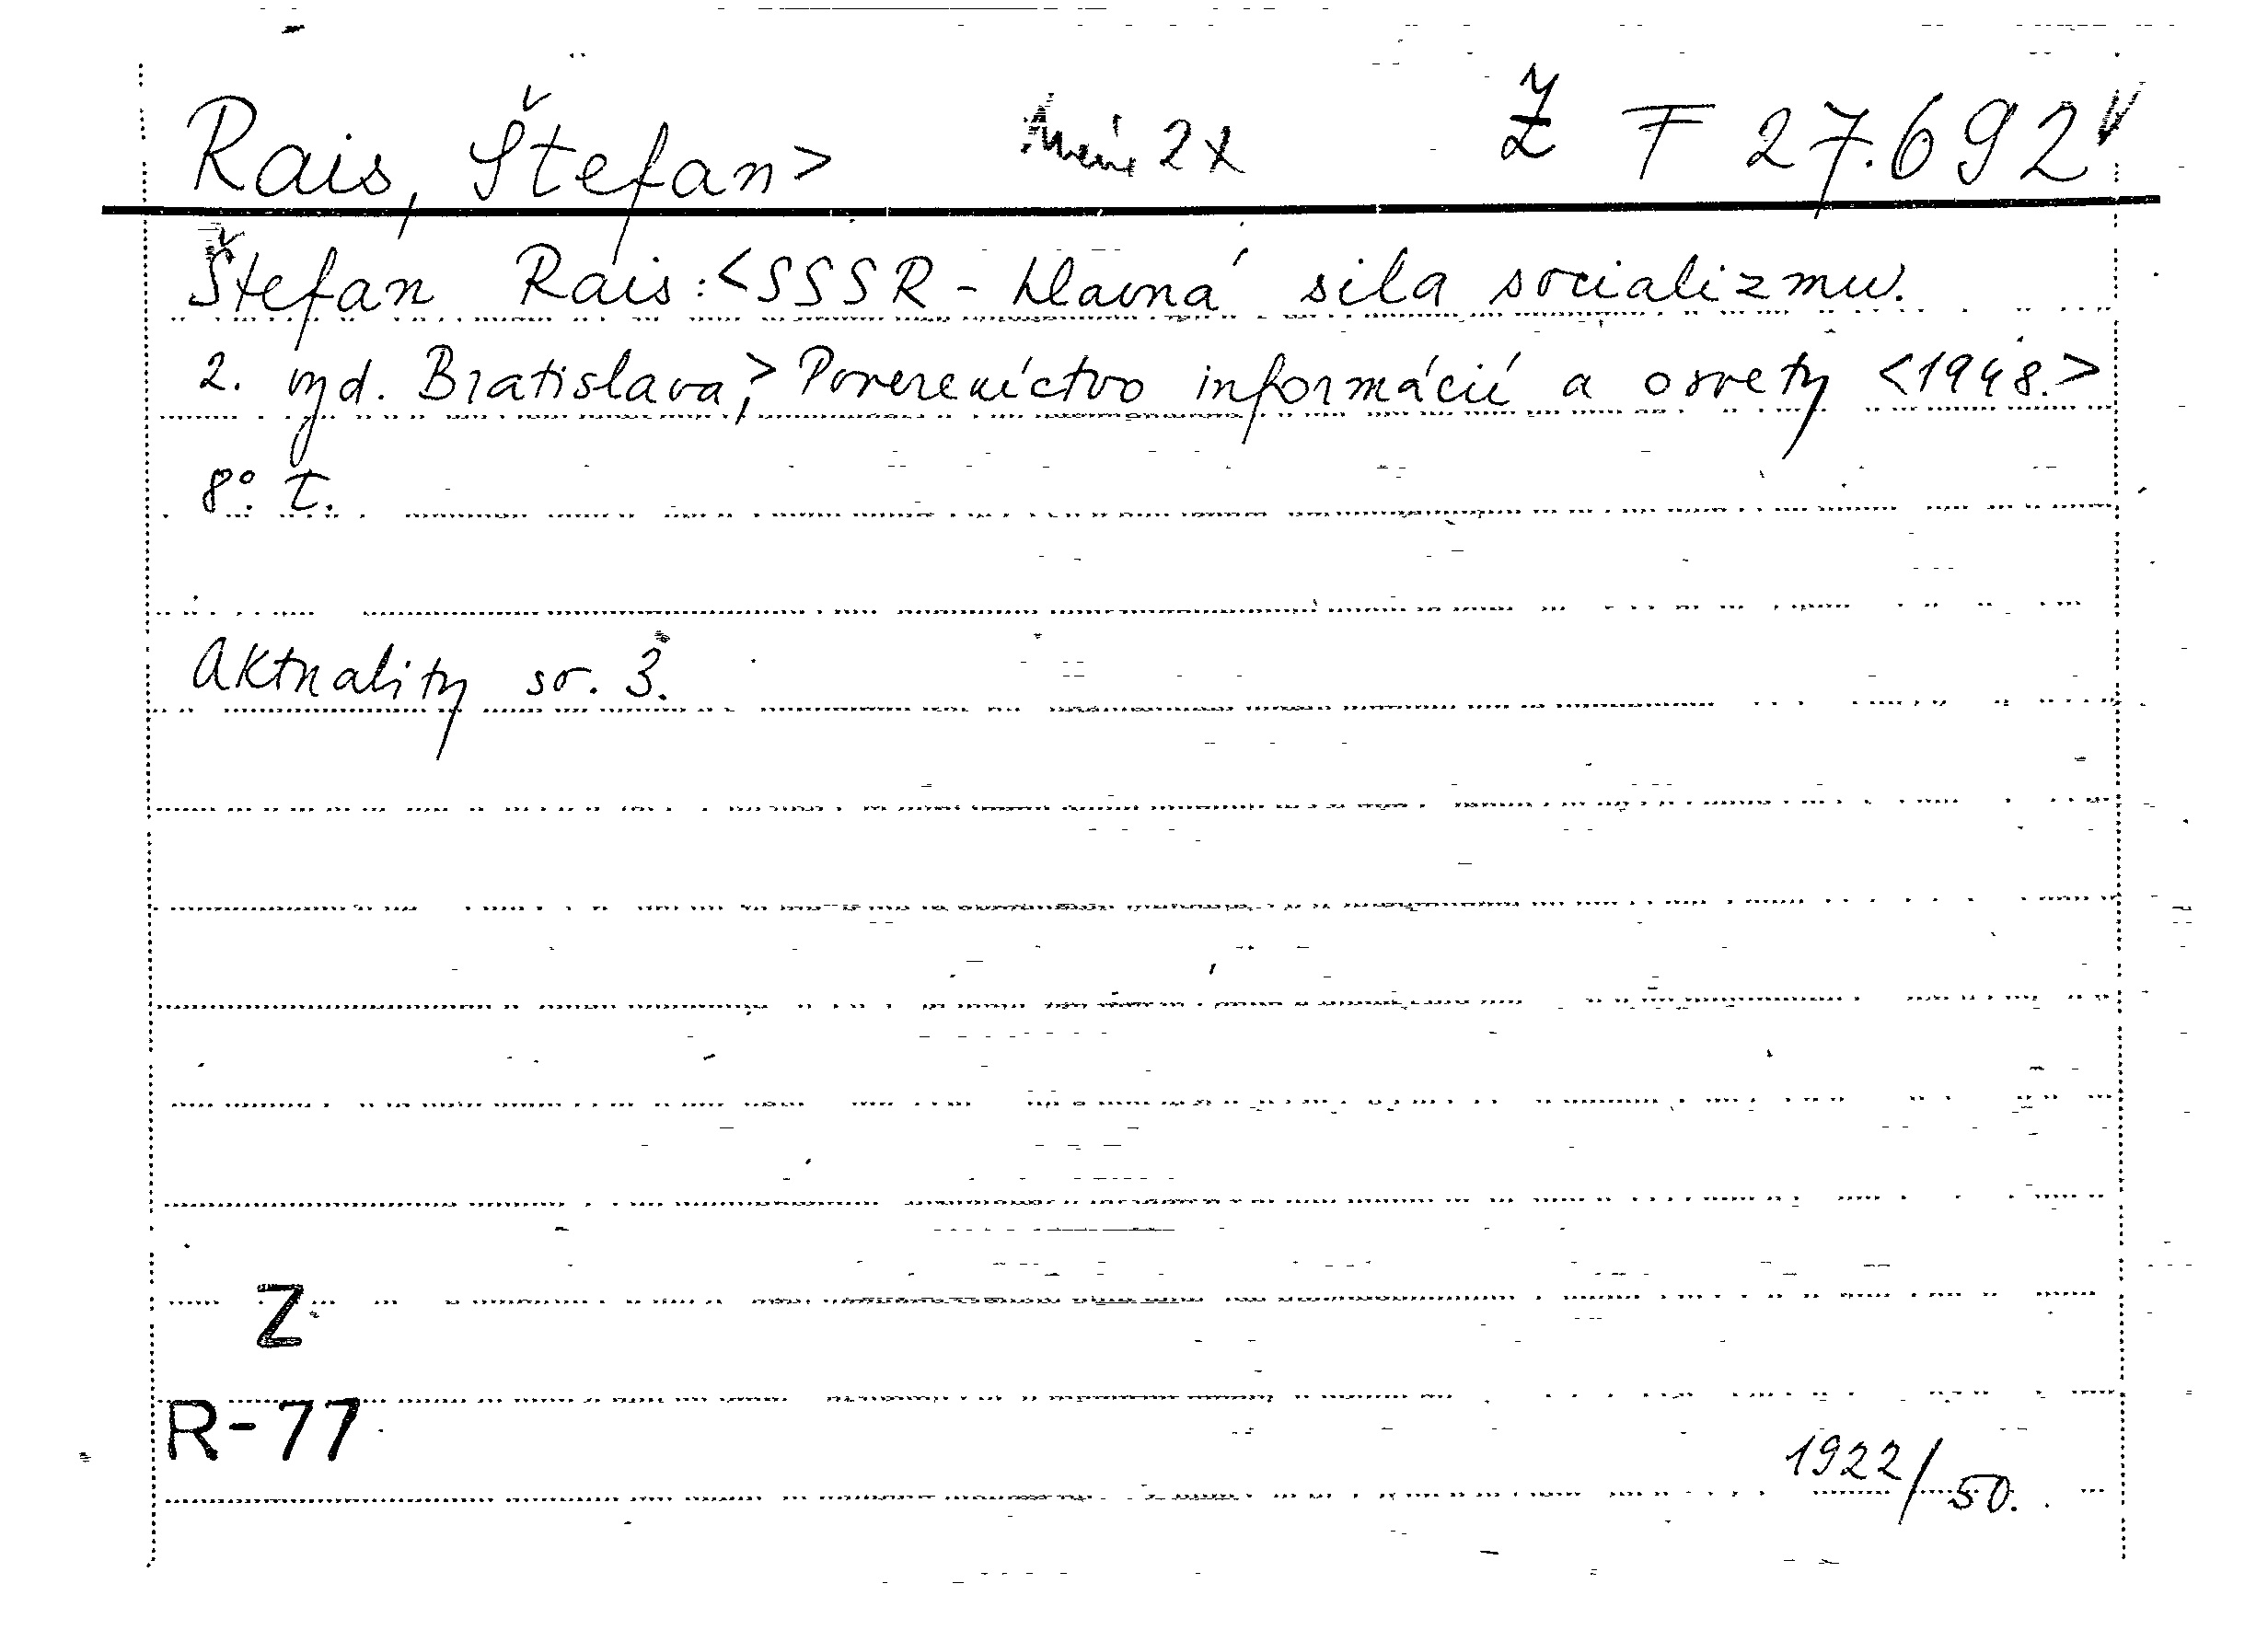 Rais, Štefan> 2x Ž F 27.692
Štefan Rais: <SSSR - hlavná sila socializmu.
2. vyd. Bratislava,> Povereníctvo informácií a osvety <1948.>
8°. t.
Aktuality sv. 3.
Z
R-77
1922/50.